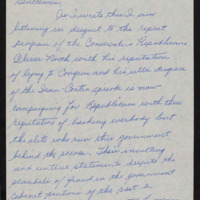 Gentlemen:
As I write this I am
listening in disgust to the repeat
program of the Conservative Republicans
Oliver North with his reputation
of lying to Congress and his utter disgrace
of the Iran-Contra episode is now
campaigning for Republicans with their
reputations of bashing everybody but
the elite who run this government
behind the scene. Their insulting
and untrue statements despite the
scandals of fraud in the government
cabinet positions of the past 2